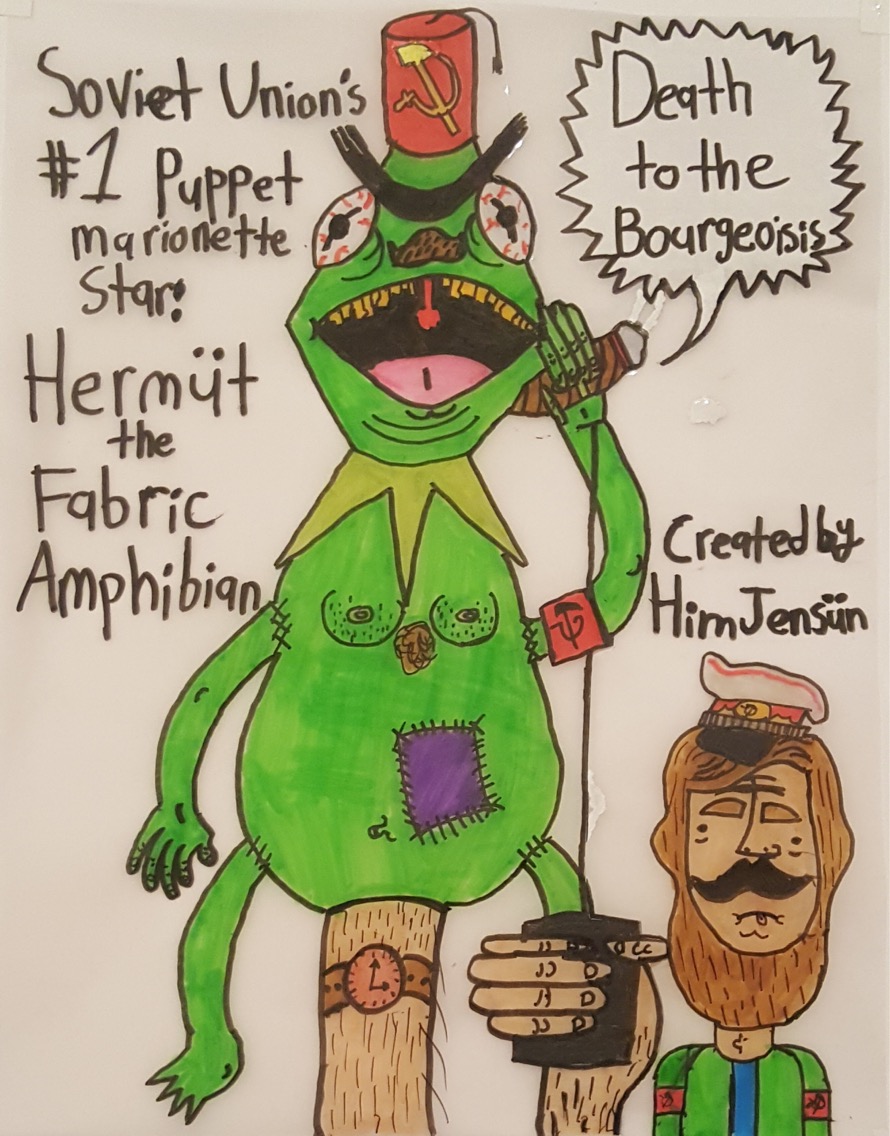 Soviet Union's
#1 Puppet
marionette
Star!
Hermüt
the
Fabric
Amphibian
Death
to the
Bourgeoisis
Created by
Him Jensün